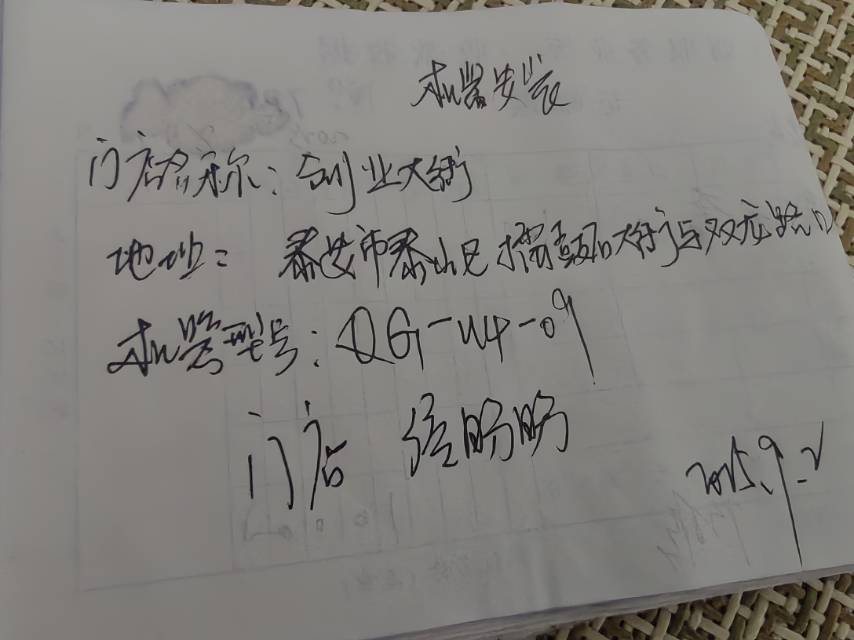 机器安装
门店名称:创业大街
地址: 泰安市泰山区擂鼓石大街与双龙路口
机器型号:QG-W4-09
门店
2025.9.2